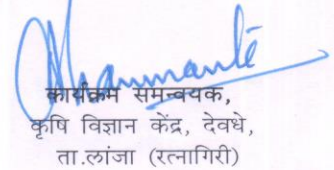 कार्यक्रम समन्वयक,
कृषि विज्ञान केंद्र, देवधे,
ता.लांजा (रत्नागिरी)